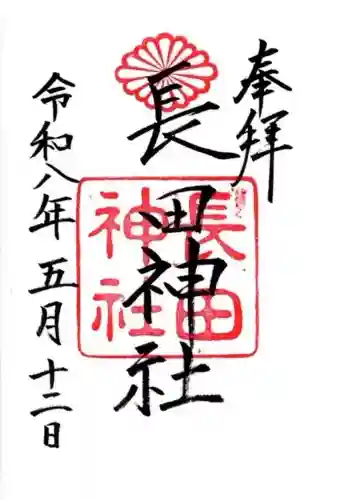 奉拝
長田神社
長田
神社
令和八年五月十二日